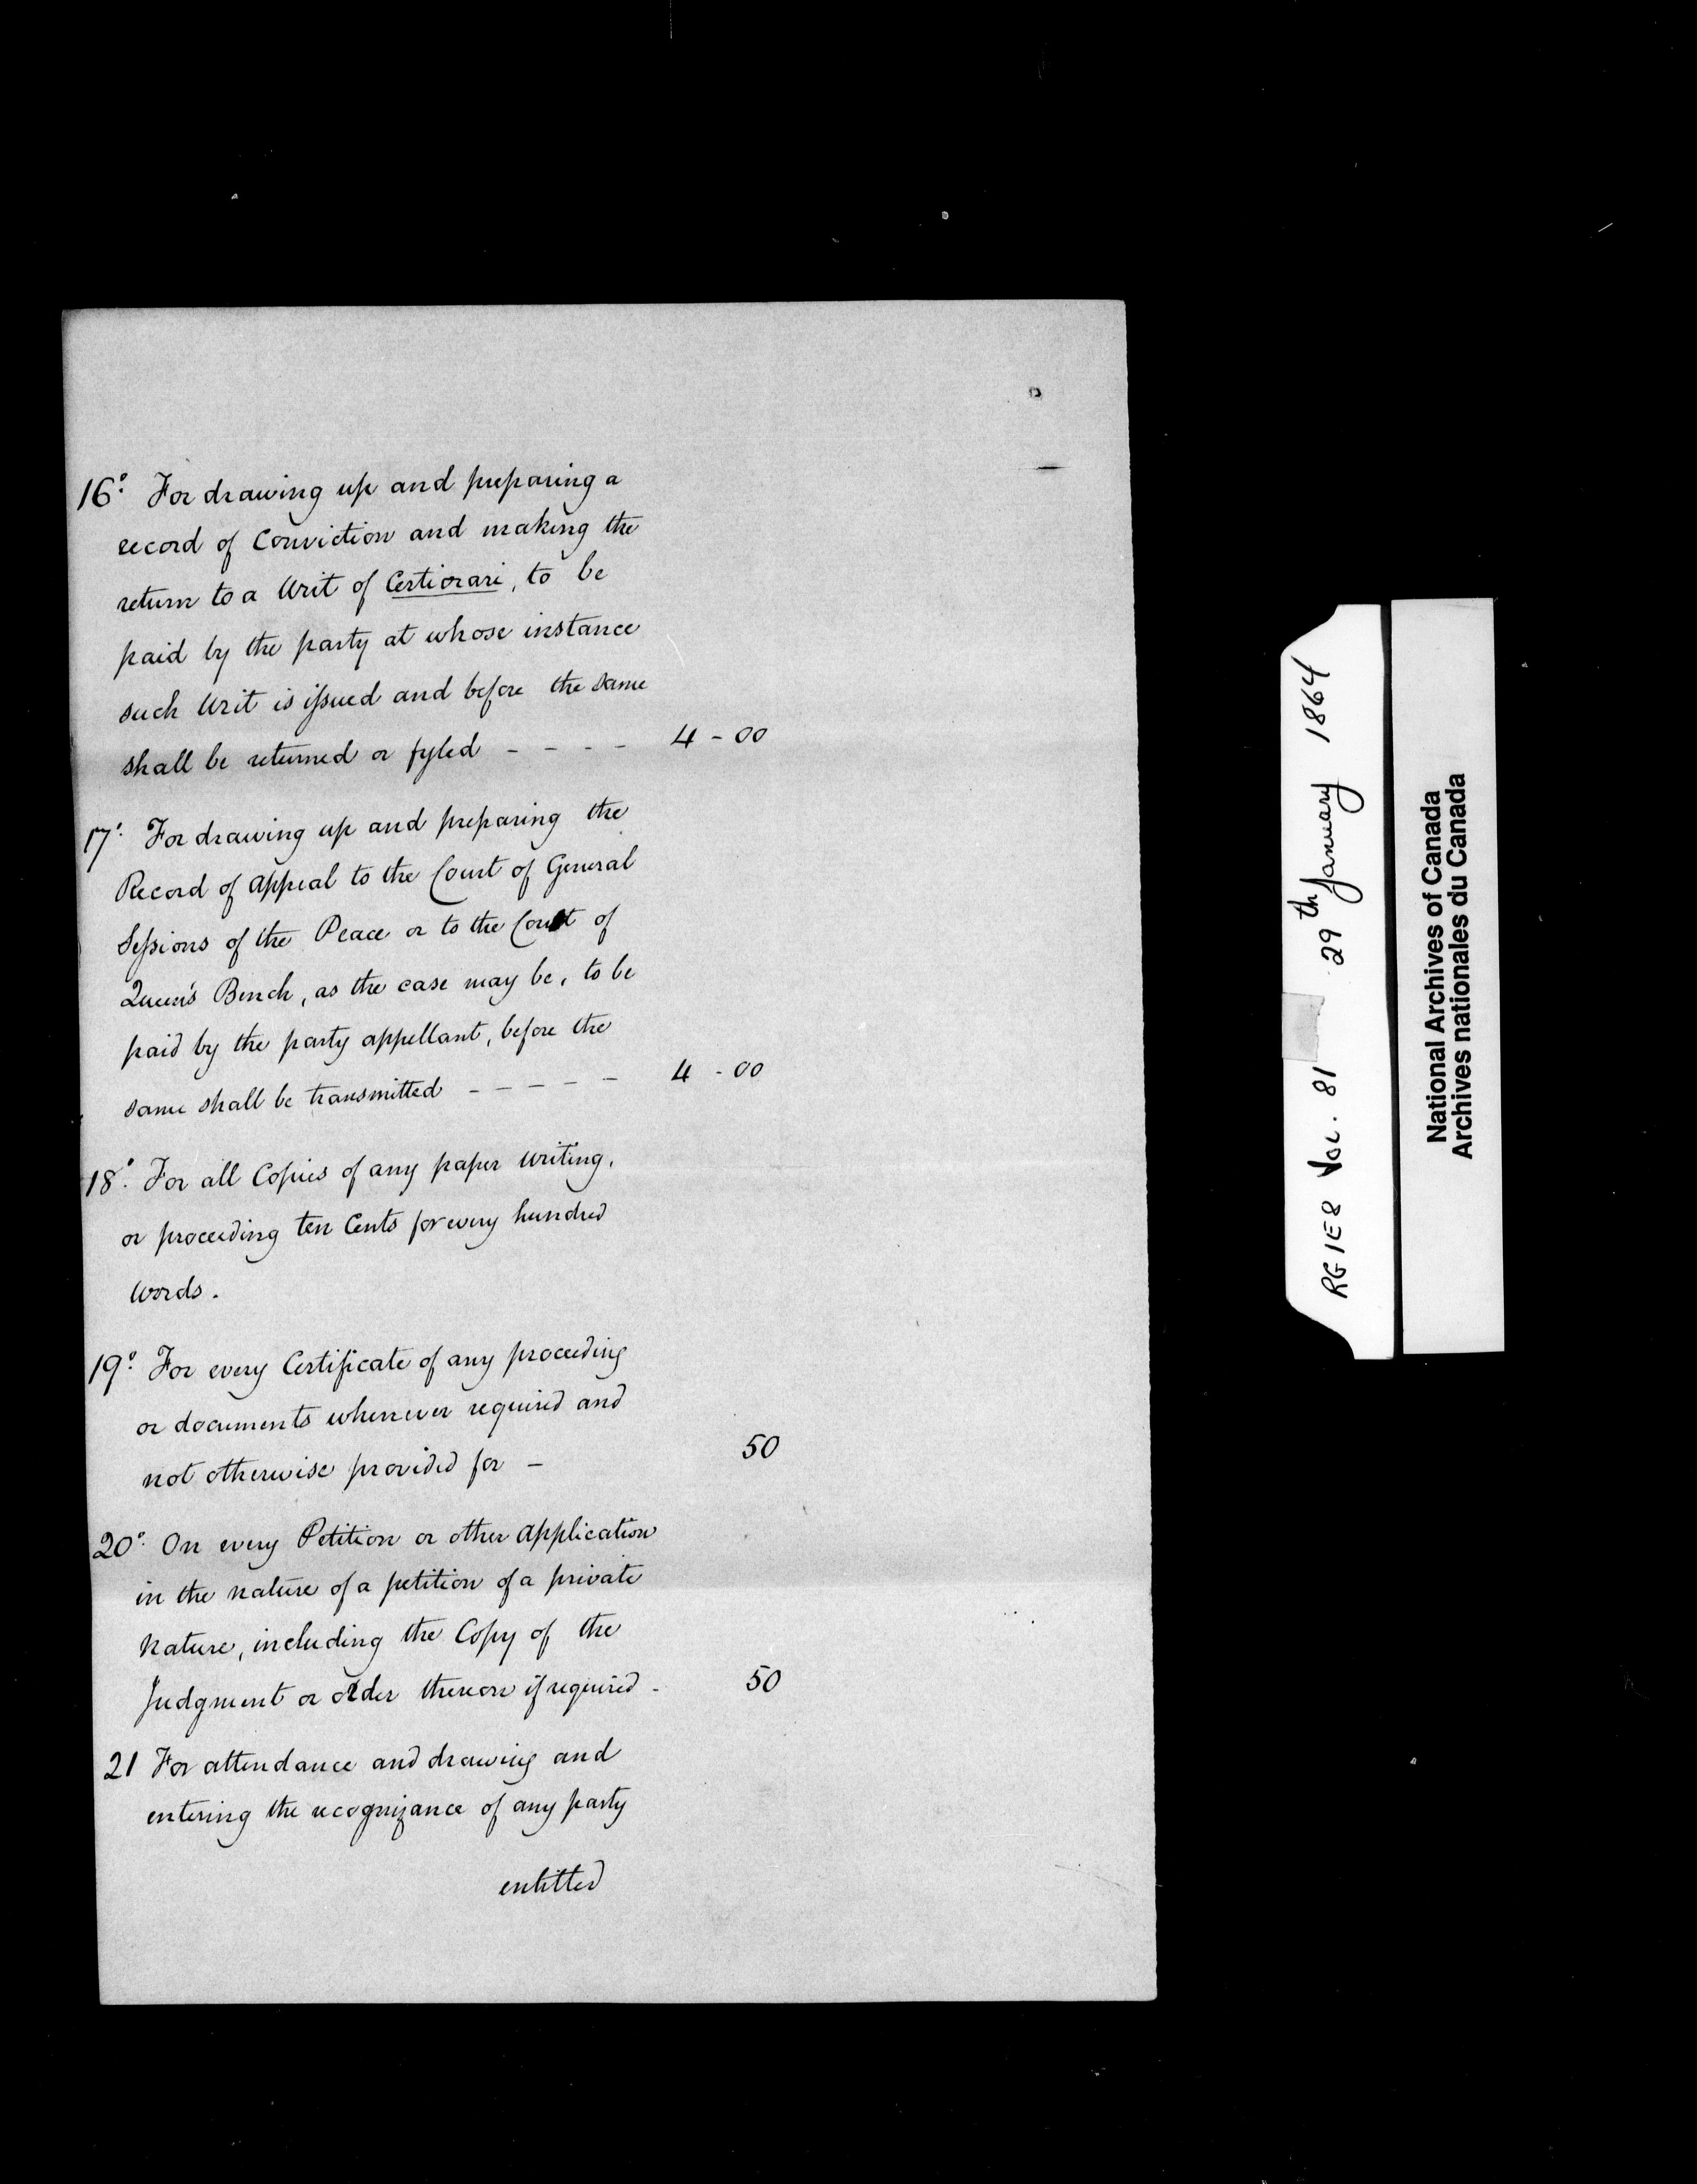 16º For drawing up and preparing a
record of Conviction and making the
return to a Writ of Certiorari, to be
paid by the party at whose instance
such Writ is issued and before the same
shall be returned or fyled - - - - 4 - 00
17º For drawing up and preparing the
Record of Appeal to the Court of General
Sessions of the Peace or to the Court of
Queen's Bench, as the case may be, to be
paid by the party appellant, before the
same shall be transmitted - - - - - 4 - 00
18º For all Copies of any paper writing,
or proceeding ten Cents for every hundred
Words.
19º For every Certificate of any proceeding
or documents whenever required and
not otherwise provided for - 50
20º On every Petition or other Application
in the nature of a petition of a private
Nature, including the Copy of the
Judgment or order thereon if required - 50
21 For attendance and drawing and
entering the recognizance of any party
entitted
RG 1E8 Vol. 81 29th January 1864
National Archives of Canada
Archives nationales du Canada